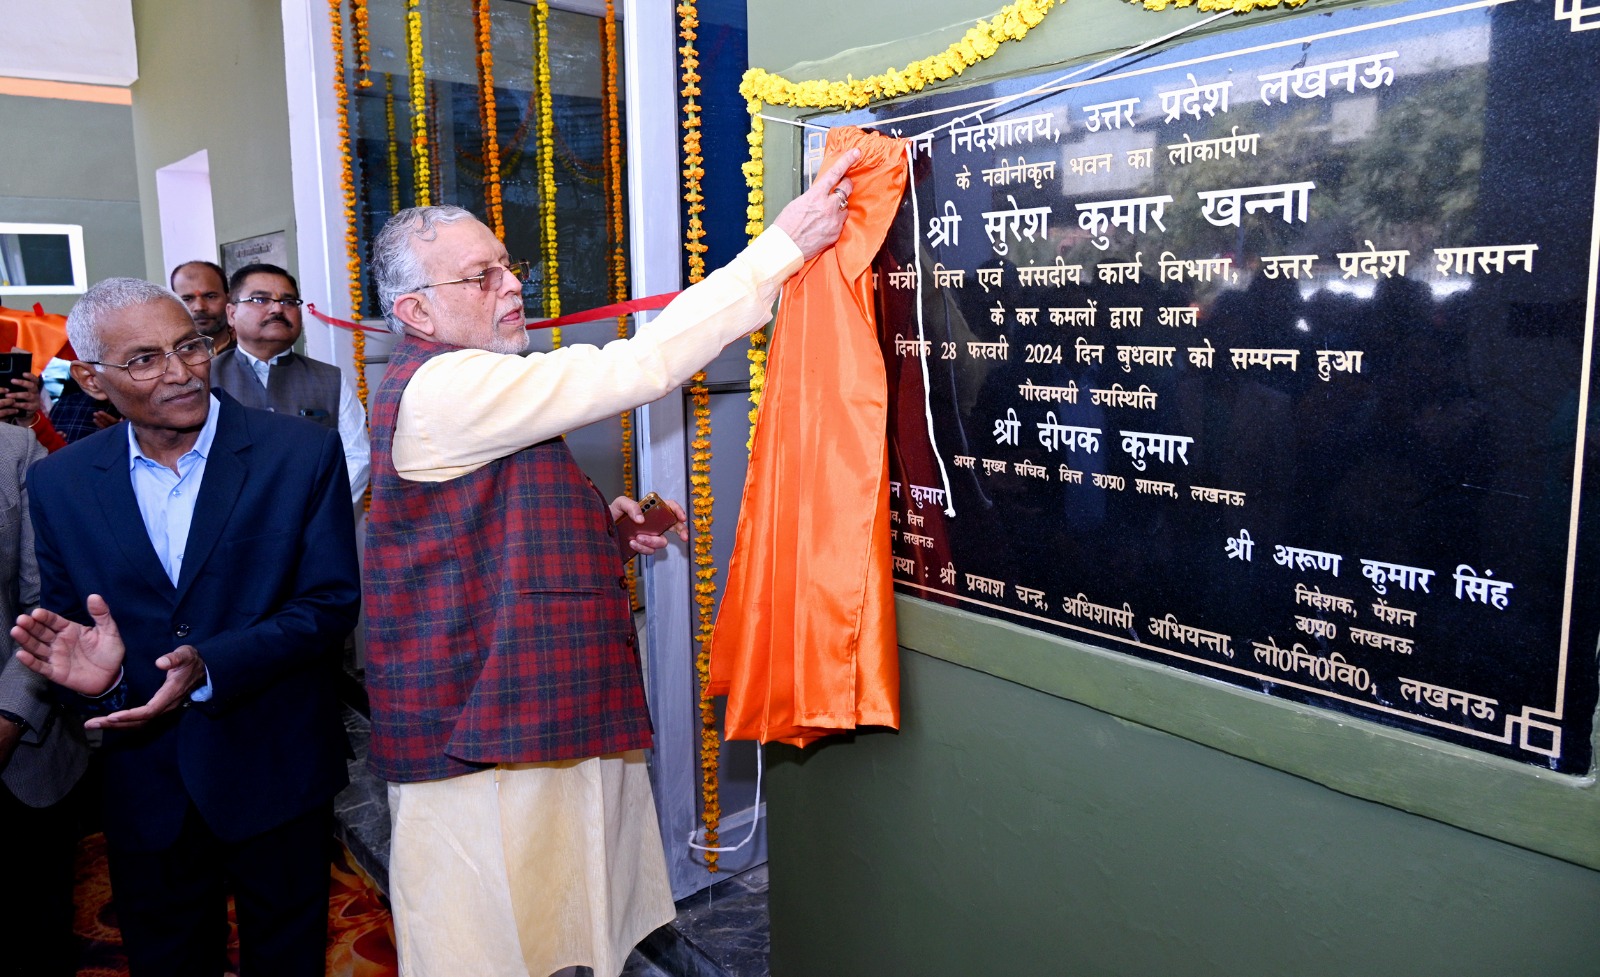 निदेशालय, उत्तर प्रदेश लखनऊ
के नवीनीकृत भवन का लोकार्पण
श्री सुरेश कुमार खन्ना
मंत्री, वित्त एवं संसदीय कार्य विभाग, उत्तर प्रदेश शासन
के कर कमलों द्वारा आज
दिनांक 28 फरवरी 2024 दिन बुधवार को सम्पन्न हुआ
गौरवमयी उपस्थिति
श्री दीपक कुमार
अपर मुख्य सचिव, वित्त उ0प्र0 शासन, लखनऊ
कुमार
वित्त
लखनऊ
श्री अरूण कुमार सिंह
निदेशक, पेंशन
उ0प्र0 लखनऊ
: श्री प्रकाश चन्द्र, अधिशासी अभियन्ता, लो0नि0वि0, लखनऊ